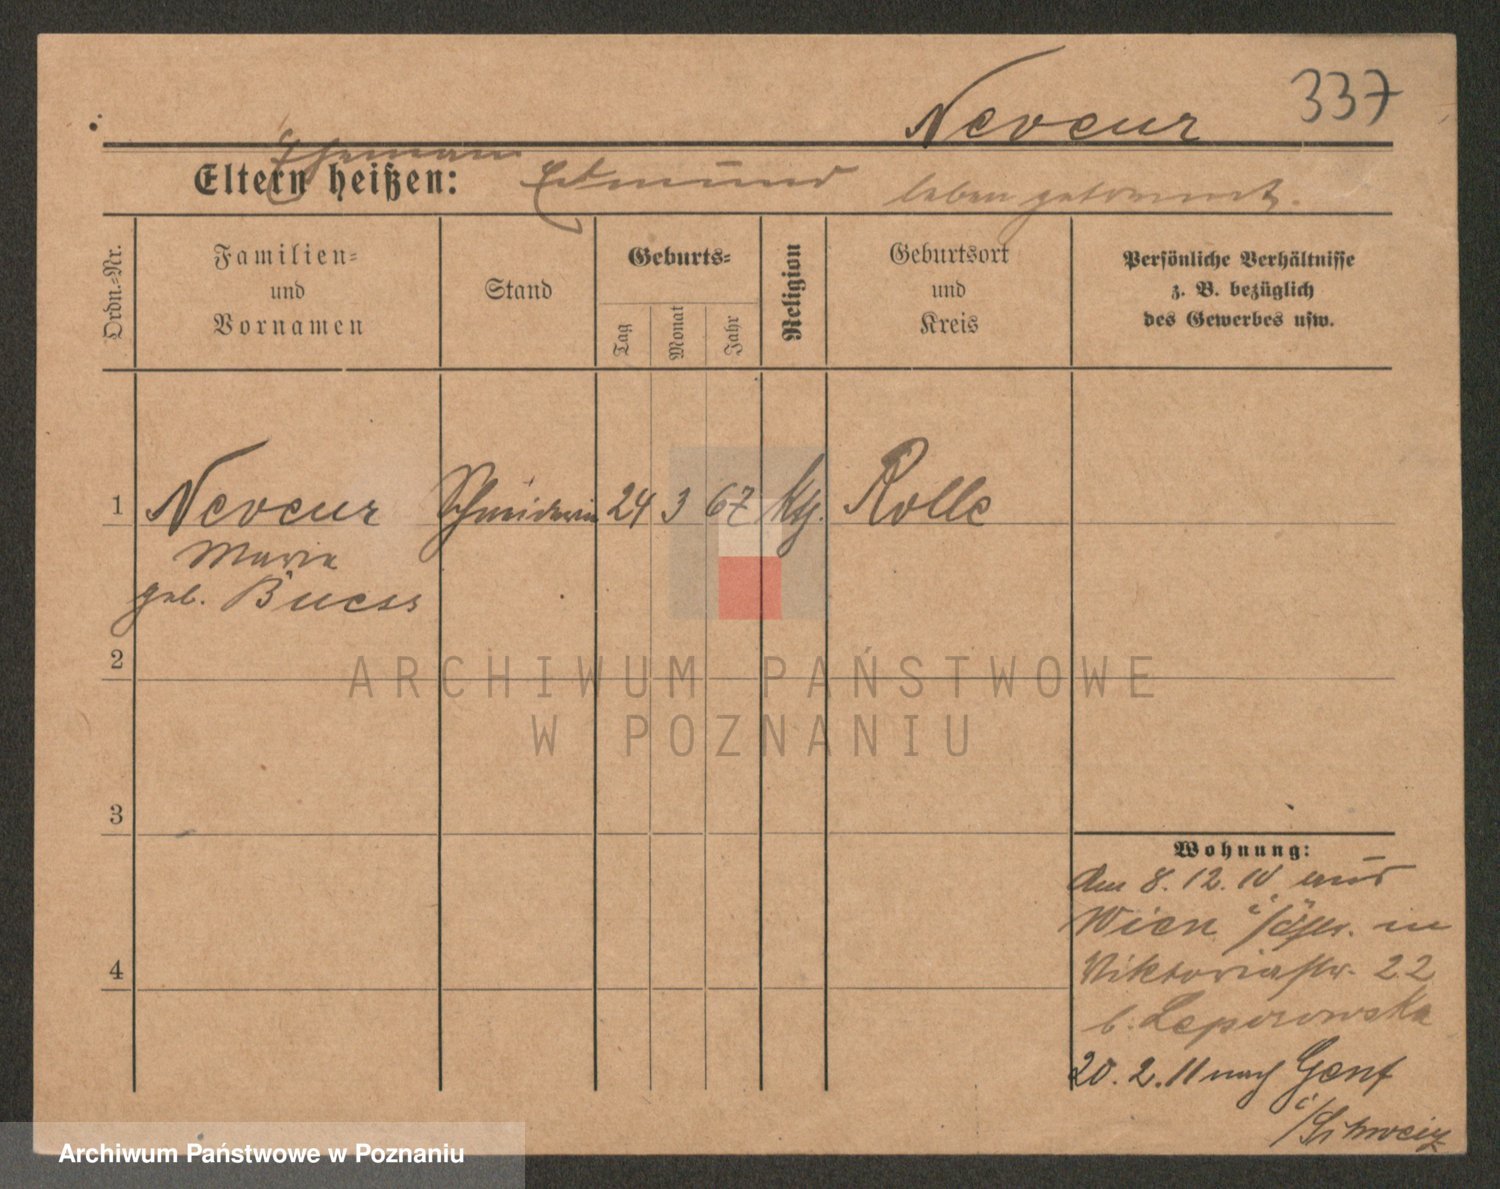 337
Neveur
Ehemann
Eltern heißen: Edmund leben getrennt.
Ordn.=Nr.
Familien=
und
Vornamen
Stand
Geburts=
Tag
Monat
Jahr
Religion
Geburtsort
und
Kreis
Persönliche Verhältnisse
z. B. bezüglich
des Gewerbes usw.
1 Neveur Schneiderin 24 3 67 Kth. Rolle
Maria
geb. Buess
2
3
4
Wohnung:
Am 8. 12. 10 aus
Wien i/Östr. in
Viktoriastr. 22
b. Leporowska
20. 2. 11 nach Genf
i/Schweiz
ARCHIWUM PAŃSTWOWE
W POZNANIU
Archiwum Państwowe w Poznaniu